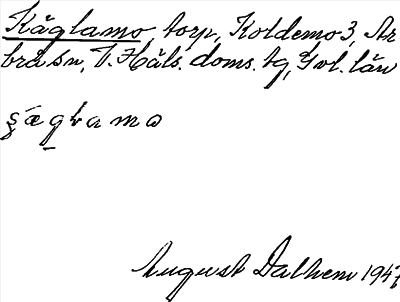 Käglamo, torp, Koldemo 3, Ar
brå sn, V. Häls. doms. tg, Gvl. län
August Dalhem 1947